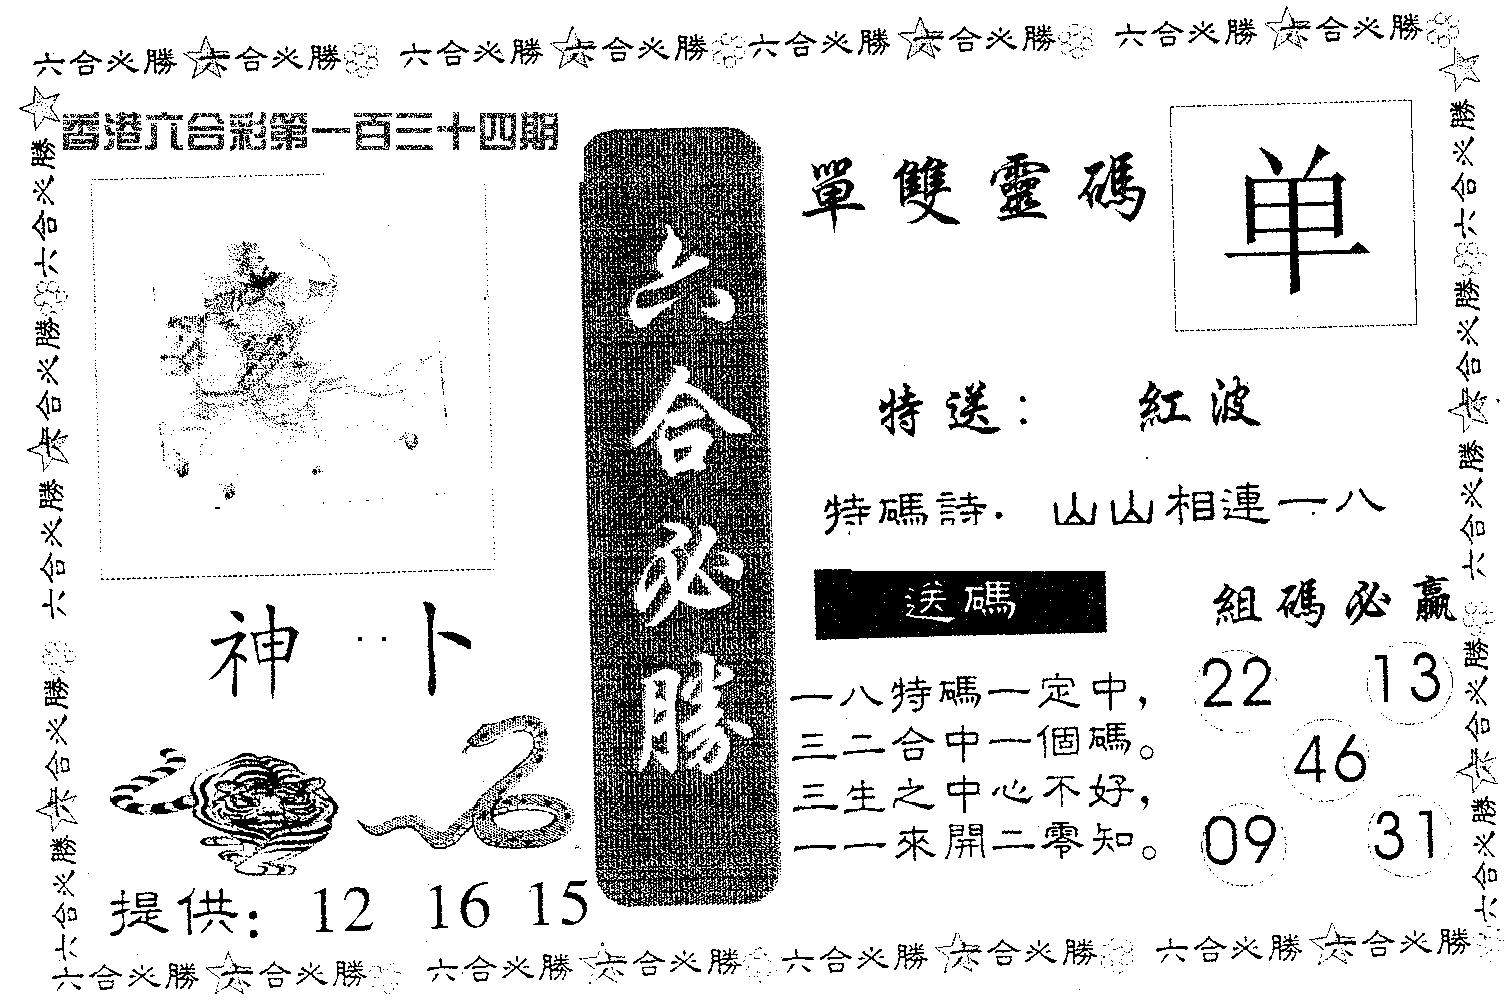 六合必勝 六合必勝 六合必勝 六合必勝 六合必勝 六合必勝 六合必勝 六合必勝
香港六合彩第一百三十四期
神··卜
提供: 12 16 15
六合必勝
單雙靈碼
单
特送: 紅波
特碼詩. 山山相連一八
送碼
一八特碼一定中,
三二合中一個碼。
三生之中心不好,
一一來開二零知。
組碼必贏
22 13
46
09 31
六合必勝 六合必勝 六合必勝 六合必勝 六合必勝
六合必勝 六合必勝 六合必勝 六合必勝 六合必勝
六合必勝 六合必勝 六合必勝 六合必勝 六合必勝 六合必勝 六合必勝 六合必勝